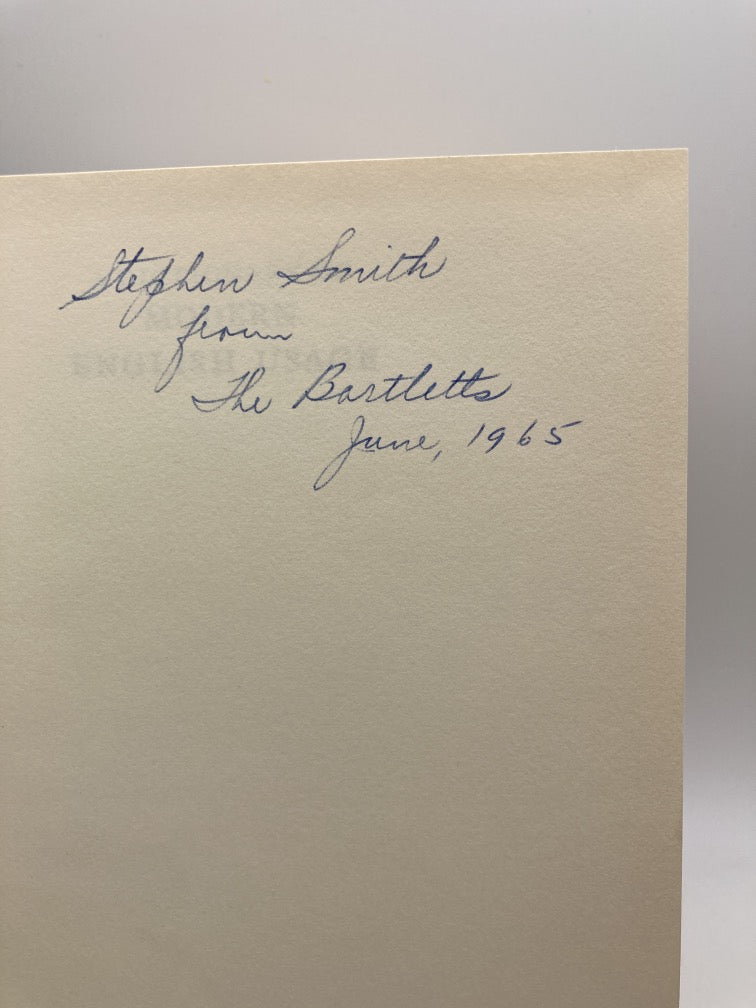 Stephen Smith
from
The Bartletts
June, 1965
MODERN
ENGLISH USAGE